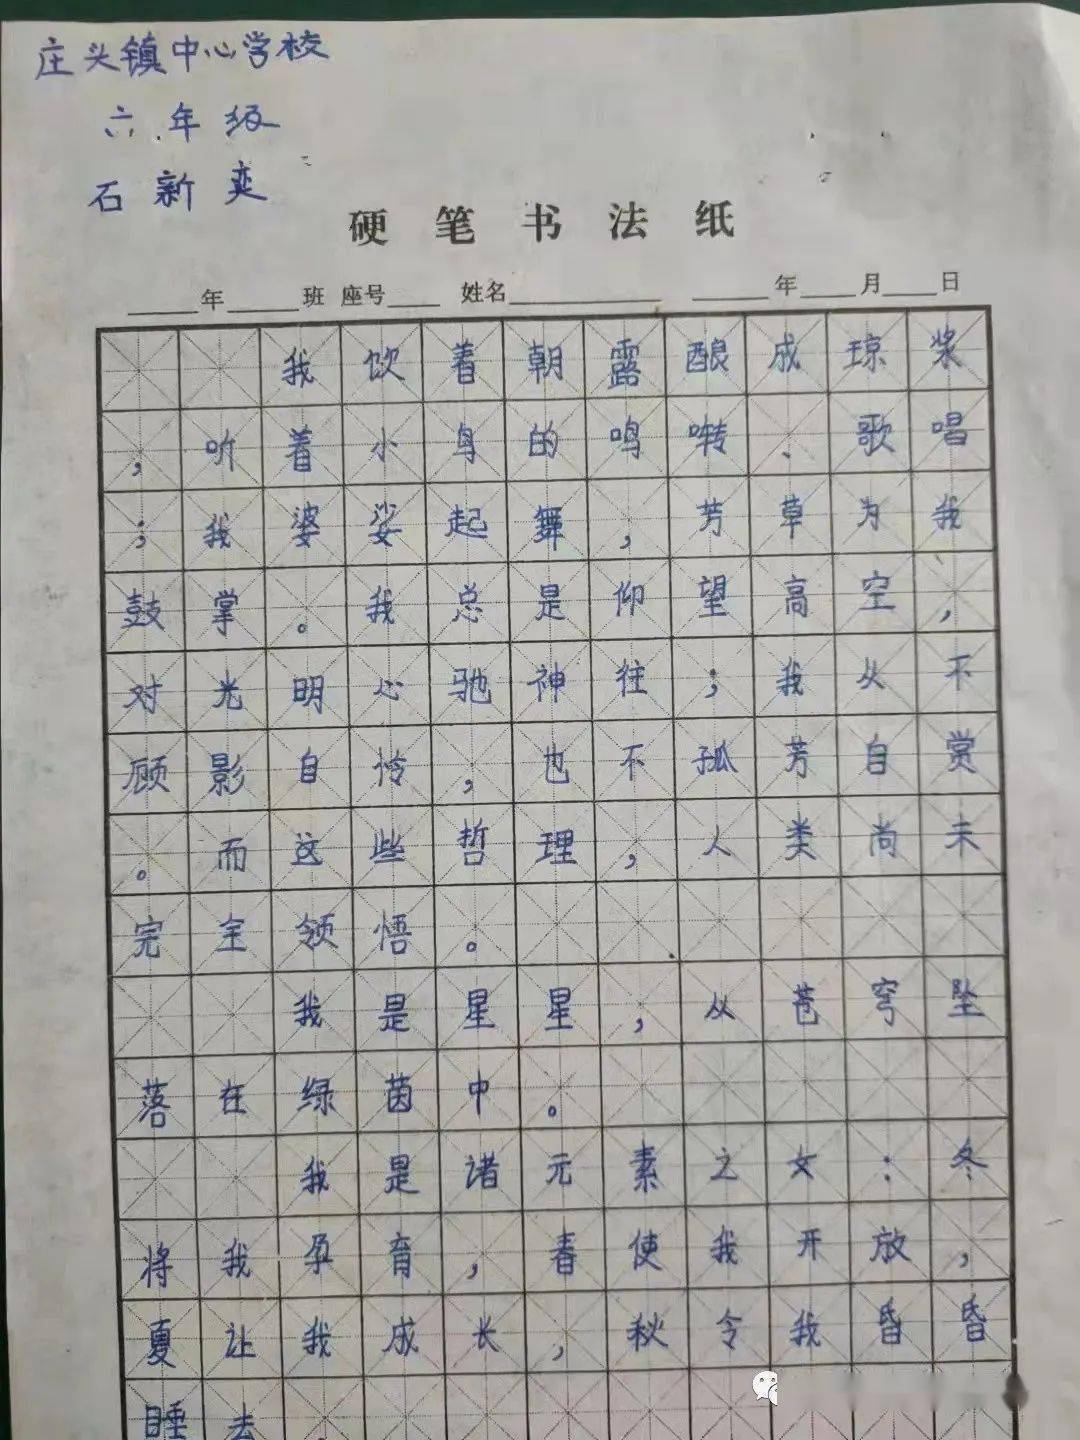 庄头镇中心学校
六年级
石新奕
硬笔书法纸
年 班 座号 姓名 年 月 日
我饮着朝露酿成琼浆
，听着小鸟的鸣啭、歌唱
；我婆娑起舞，芳草为我
鼓掌。我总是仰望高空，
对光明心驰神往；我从不
顾影自怜，也不孤芳自赏
。而这些哲理，人类尚未
完全领悟。
我是星星，从苍穹坠
落在绿茵中。
我是诸元素之女：冬
将我孕育，春使我开放，
夏让我成长，秋令我昏昏
睡去